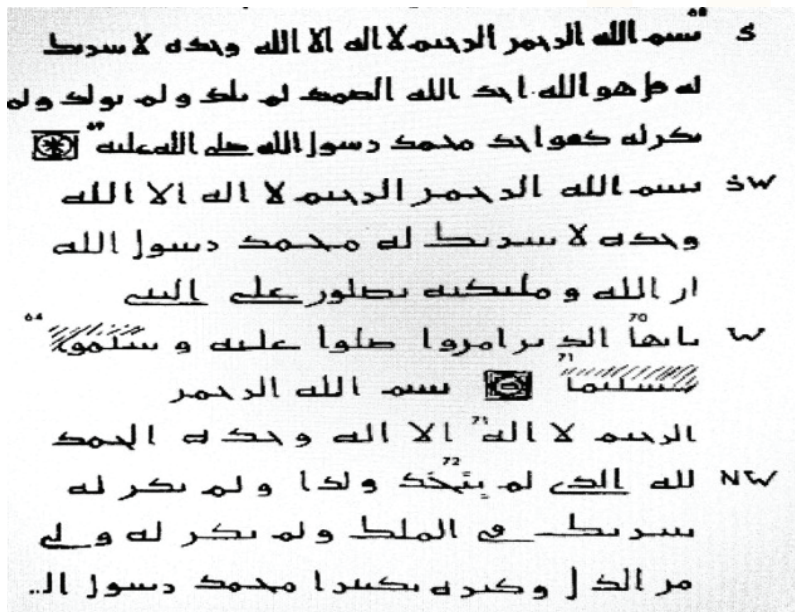 S بسم الله الرحمن الرحيم لا اله الا الله وحده لا شريك 68
له قل هو الله احد الله الصمد لم يلد و لم يولد و لم
يكن له كفوا احد محمد رسول الله صلى الله عليه 69
SW بسم الله الرحمن الرحيم لا اله الا الله
وحده لا شريك له محمد رسول الله
ان الله و ملئكته يصلون على النبي
W يايها 70 الذين امنوا صلوا عليه و سلموا 64
تسليما 71 بسم الله الرحمن
الرحيم لا اله 71 الا الله وحده الحمد
NW لله الذي لم يتخذ 72 ولدا و لم يكن له
شريك في الملك و لم يكن له و لي
من الذل و كبره تكبيرا محمد رسول ا لـ..